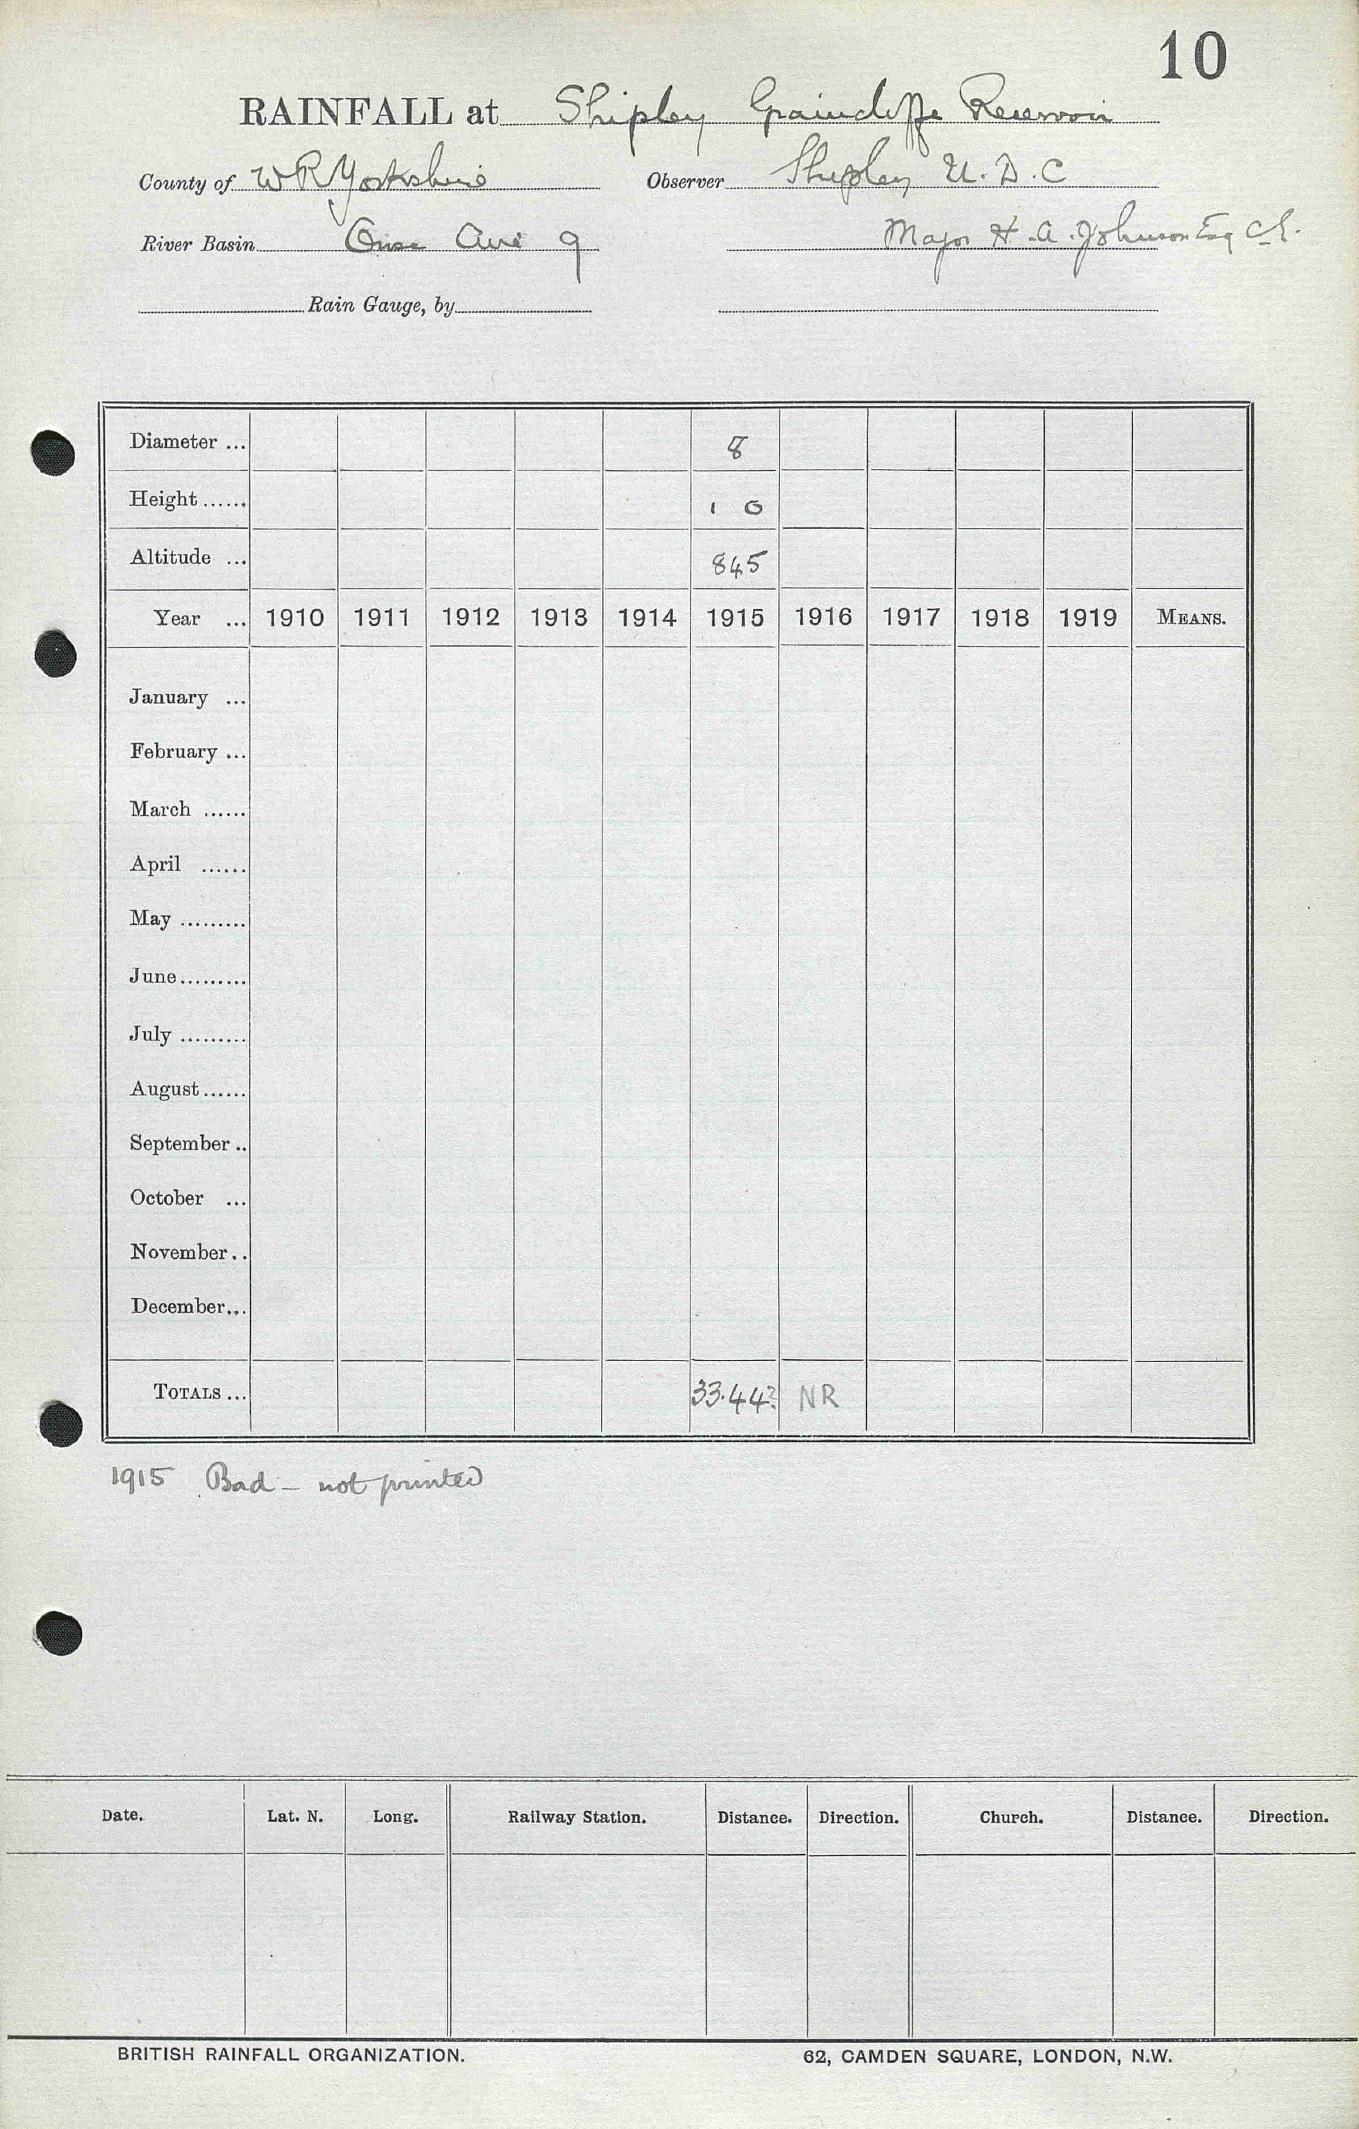 10
RAINFALL at Shipley Graincliffe Reservoir
County of W R Yorkshire Observer Shipley U.D.C
River Basin Ouse Aire 9 Major H.A. Johnson Esq C.E.
Rain Gauge, by
Diameter ... 8
Height ...... 1 0
Altitude ... 845
Year ... 1910 1911 1912 1913 1914 1915 1916 1917 1918 1919 MEANS.
January ...
February ...
March ......
April ......
May .........
June.........
July .........
August......
September ..
October ...
November..
December...
TOTALS ... 33.44? NR
1915 Bad - not printed
Date. Lat. N. Long. Railway Station. Distance. Direction. Church. Distance. Direction.
BRITISH RAINFALL ORGANIZATION. 62, CAMDEN SQUARE, LONDON, N.W.